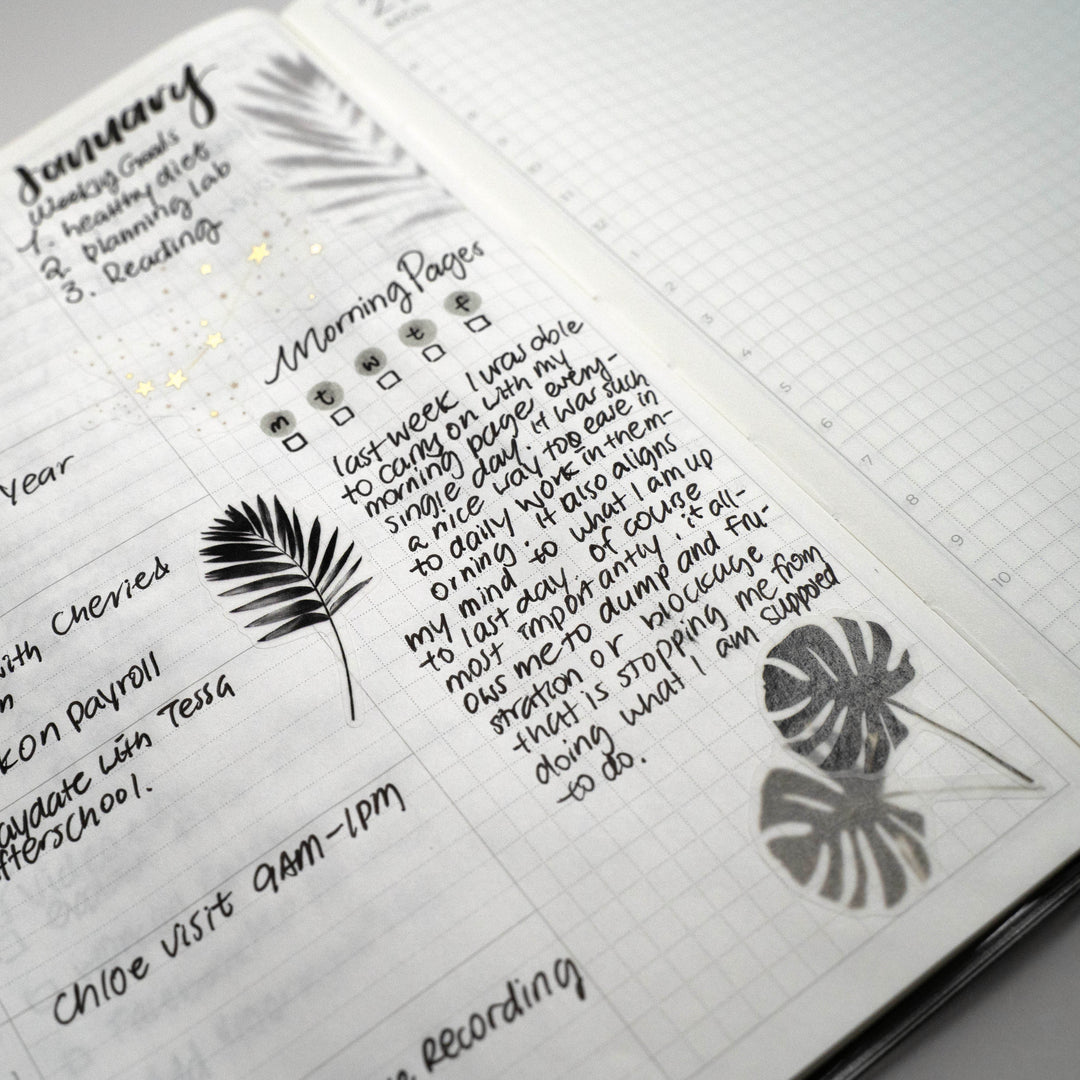 January
Weekly Goals
1. healthy diet
2. Planning Lab
3. Reading
Morning Pages
m t w t f
last week I was able
to carry on with my
morning pages every-
single day. it was such
a nice way too ease in
to daily work in them-
orning. it also aligns
my mind to what I am up
to last day. of course
most importantly. it all-
ows me to dump and fru-
stration or blockage
that is stopping me from
doing what I am supposed
to do.
year
Cheries
with
kon payroll
aydate with Tessa
fterschool.
Chloe visit 9AM-1PM
recording
1
2
3
4
5
6
7
8
9
10